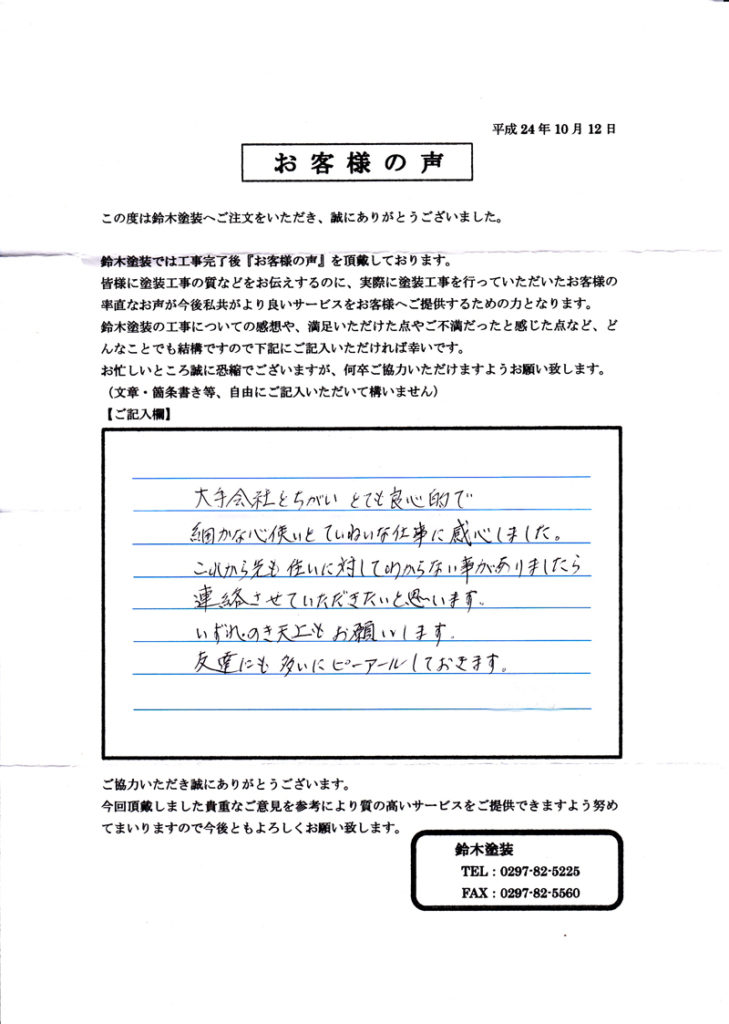 平成 24 年 10 月 12 日
お 客 様 の 声
この度は鈴木塗装へご注文をいただき、誠にありがとうございました。
鈴木塗装では工事完了後『お客様の声』を頂戴しております。
皆様に塗装工事の質などをお伝えするのに、実際に塗装工事を行っていただいたお客様の
率直なお声が今後私共がより良いサービスをお客様へご提供するための力となります。
鈴木塗装の工事についての感想や、満足いただけた点やご不満だったと感じた点など、ど
んなことでも結構ですので下記にご記入いただければ幸いです。
お忙しいところ誠に恐縮でございますが、何卒ご協力いただけますようお願い致します。
（文章・箇条書き等、自由にご記入いただいて構いません）
【ご記入欄】
大手会社とちがい とても良心的で
細かな心使いとていねいな仕事に感心しました。
これから先も住いに対してわからない事がありましたら
連絡させていただきたいと思います。
いずれのき天上もお願いします。
友達にも多いにピーアールしておきます。
ご協力いただき誠にありがとうございます。
今回頂戴しました貴重なご意見を参考により質の高いサービスをご提供できますよう努め
てまいりますので今後ともよろしくお願い致します。
鈴木塗装
TEL：0297-82-5225
FAX：0297-82-5560